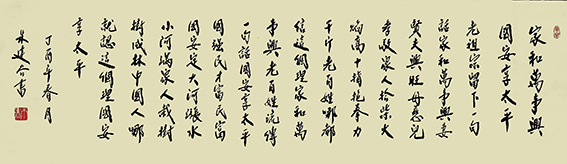 家和萬事興
國安享太平
老祖宗留下一句
話家和萬事興妻
賢夫興旺母慈兒
孝敬眾人拾柴火
焰高十指抱拳力
千斤老百姓哪都
信這個理家和萬
事興老百姓流傳
一句話國安享太平
國強民才富民富
國安定大河漲水
小河滿眾人栽樹
樹成林中國人哪
就認這個理國安
享太平
丁酉年春月
建合書